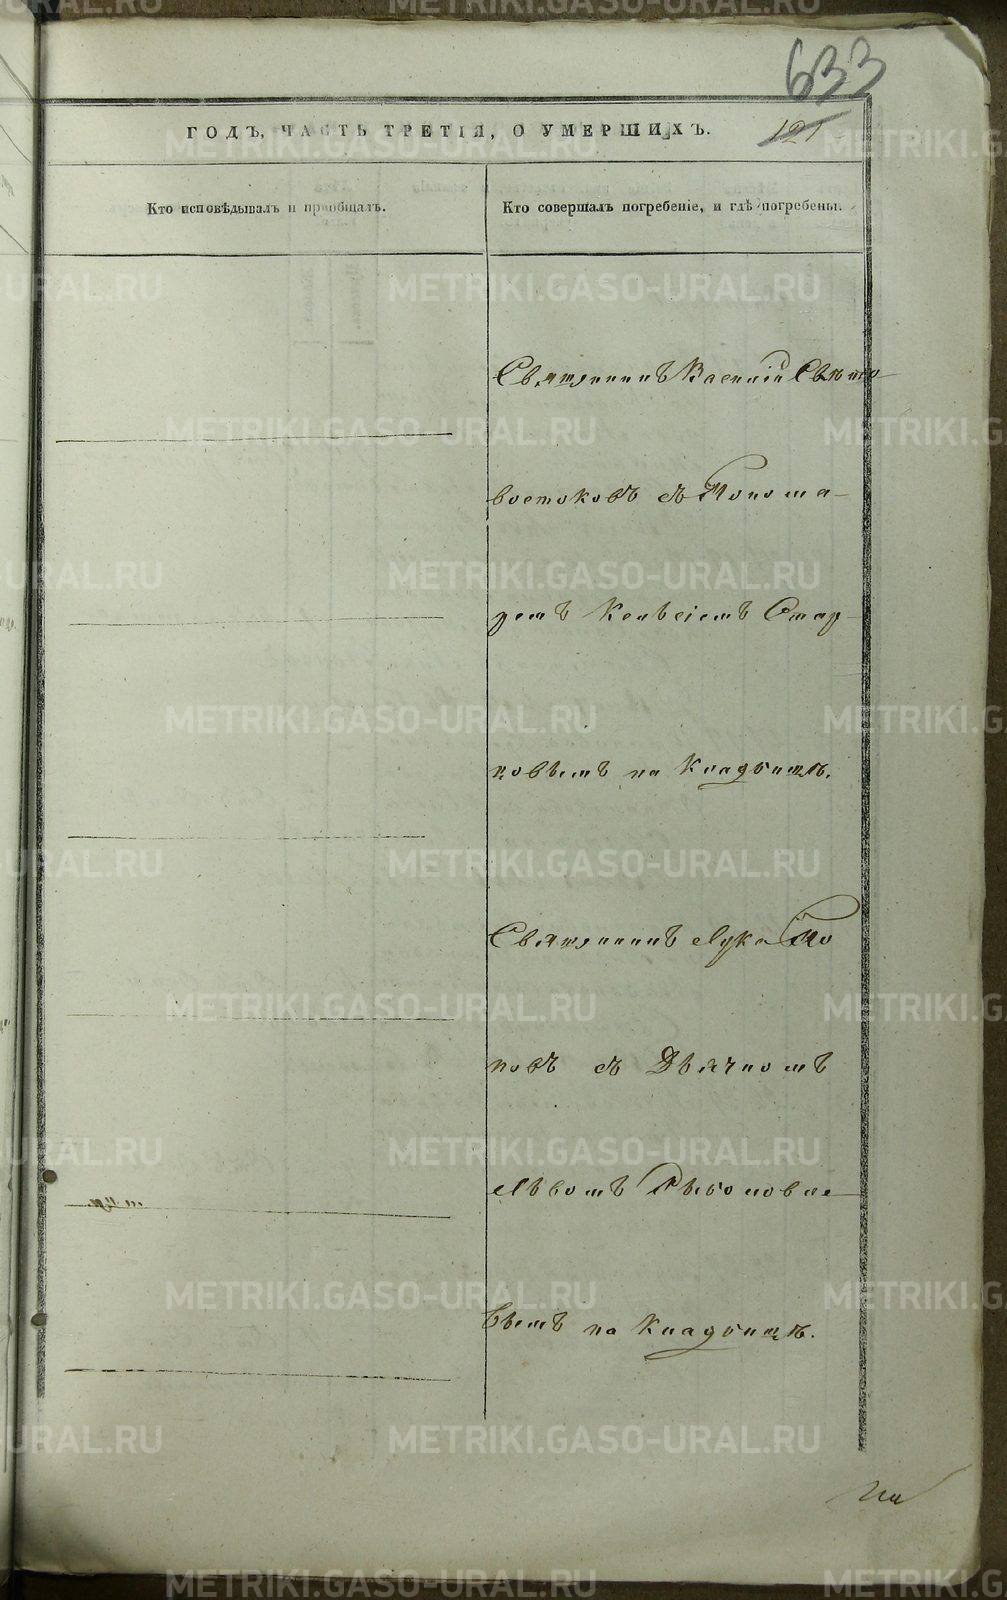 633
121
ГОДЪ, ЧАСТЬ ТРЕТІЯ, О УМЕРШИХЪ.
Кто исповѣдывалъ и пріобщалъ.
Кто совершалъ погребеніе, и гдѣ погребены.
Священникъ Василій Свѣто-
востоковъ съ Понома-
ремъ Стар
цовымъ на Кладбищѣ.
Священникъ Лука По
повъ съ Дьячкомъ
Львомъ
вымъ на Кладбищѣ.
METRIKI.GASO-URAL.RU